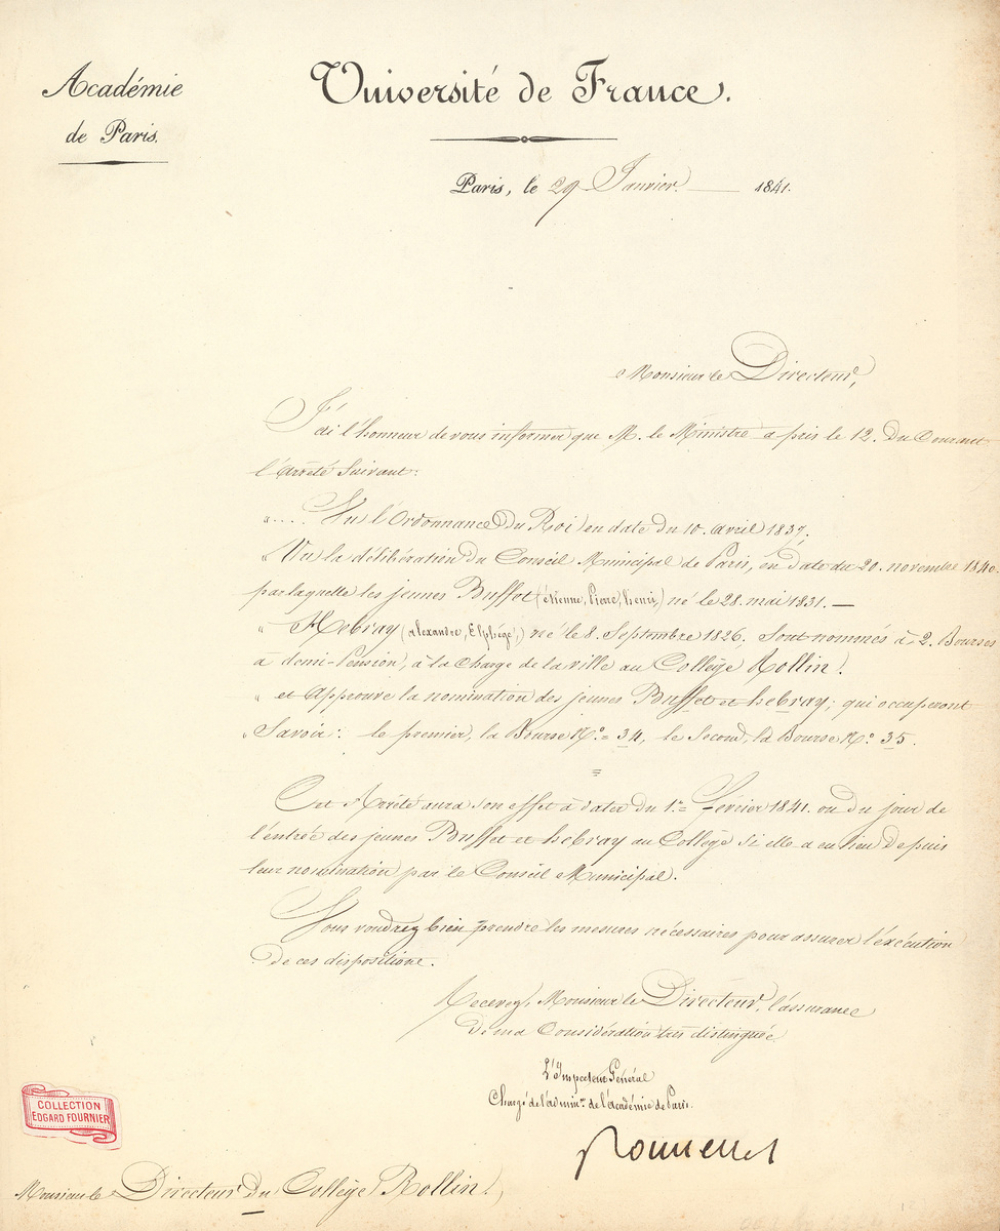 Académie
de Paris.
Université de France.
Paris, le 29 Janvier. 1841.
Monsieur le Directeur,
J'ai l'honneur de vous informer que M. le Ministre a pris le 12. Du Courant
l'Arrêté Suivant:
".... Vu l'Ordonnance Du Roi, en date du 10. avril 1837.
" Vu la délibération Du Conseil Municipal de Paris, en date du 20. novembre 1840.
par laquelle les jeunes Buffet (étienne, Pierre, henri) né le 28. mai 1831. —
" Hebray (alexandre, ) né le 8. Septembre 1826. Sont nommés à 2. Bourses
à demi-Pension, à la Charge de la ville au Collège Rollin.
" et Approuve la nomination des jeunes Buffet et hebray; qui occuperont
" Savoir: le premier, la Bourse N.° 34, le Second, la Bourse N.° 35.
Cet Arrêté aura son effet à dater du 1.er Février 1841. ou Du jour de
l'entrée des jeunes Buffet et hebray au Collège Si elle a eu lieu Depuis
leur nomination par le Conseil Municipal.
Vous voudrez bien prendre les mesures nécessaires pour assurer l'exécution
De ces dispositions.
Recevez, Monsieur le Directeur, l'assurance
De ma Considération très distinguée
L'Inspecteur Général
Chargé de l'admin.on de l'académie de Paris.
Rousselles
COLLECTION
EDGARD FOURNIER
Monsieur le Directeur Du Collège Rollin.